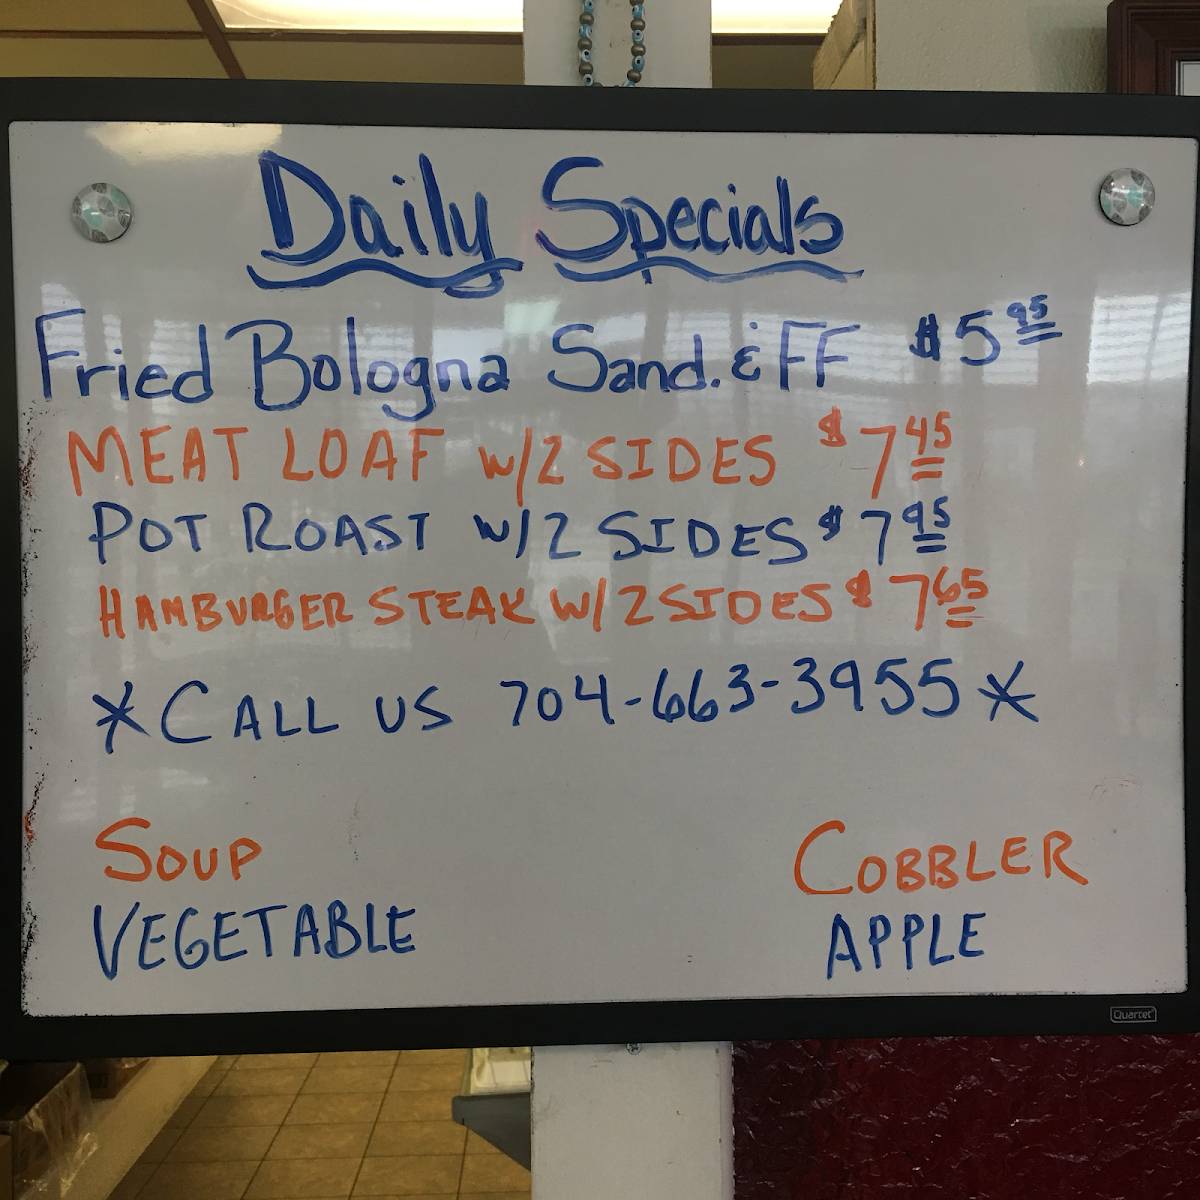 Daily Specials
Fried Bologna Sand. & FF $5 95
MEAT LOAF w/2 SIDES $7 45
POT ROAST w/2 SIDES $7 95
HAMBURGER STEAK w/2 SIDES $7 65
*CALL US 704-663-3955*
SOUP COBBLER
VEGETABLE APPLE
Quartet